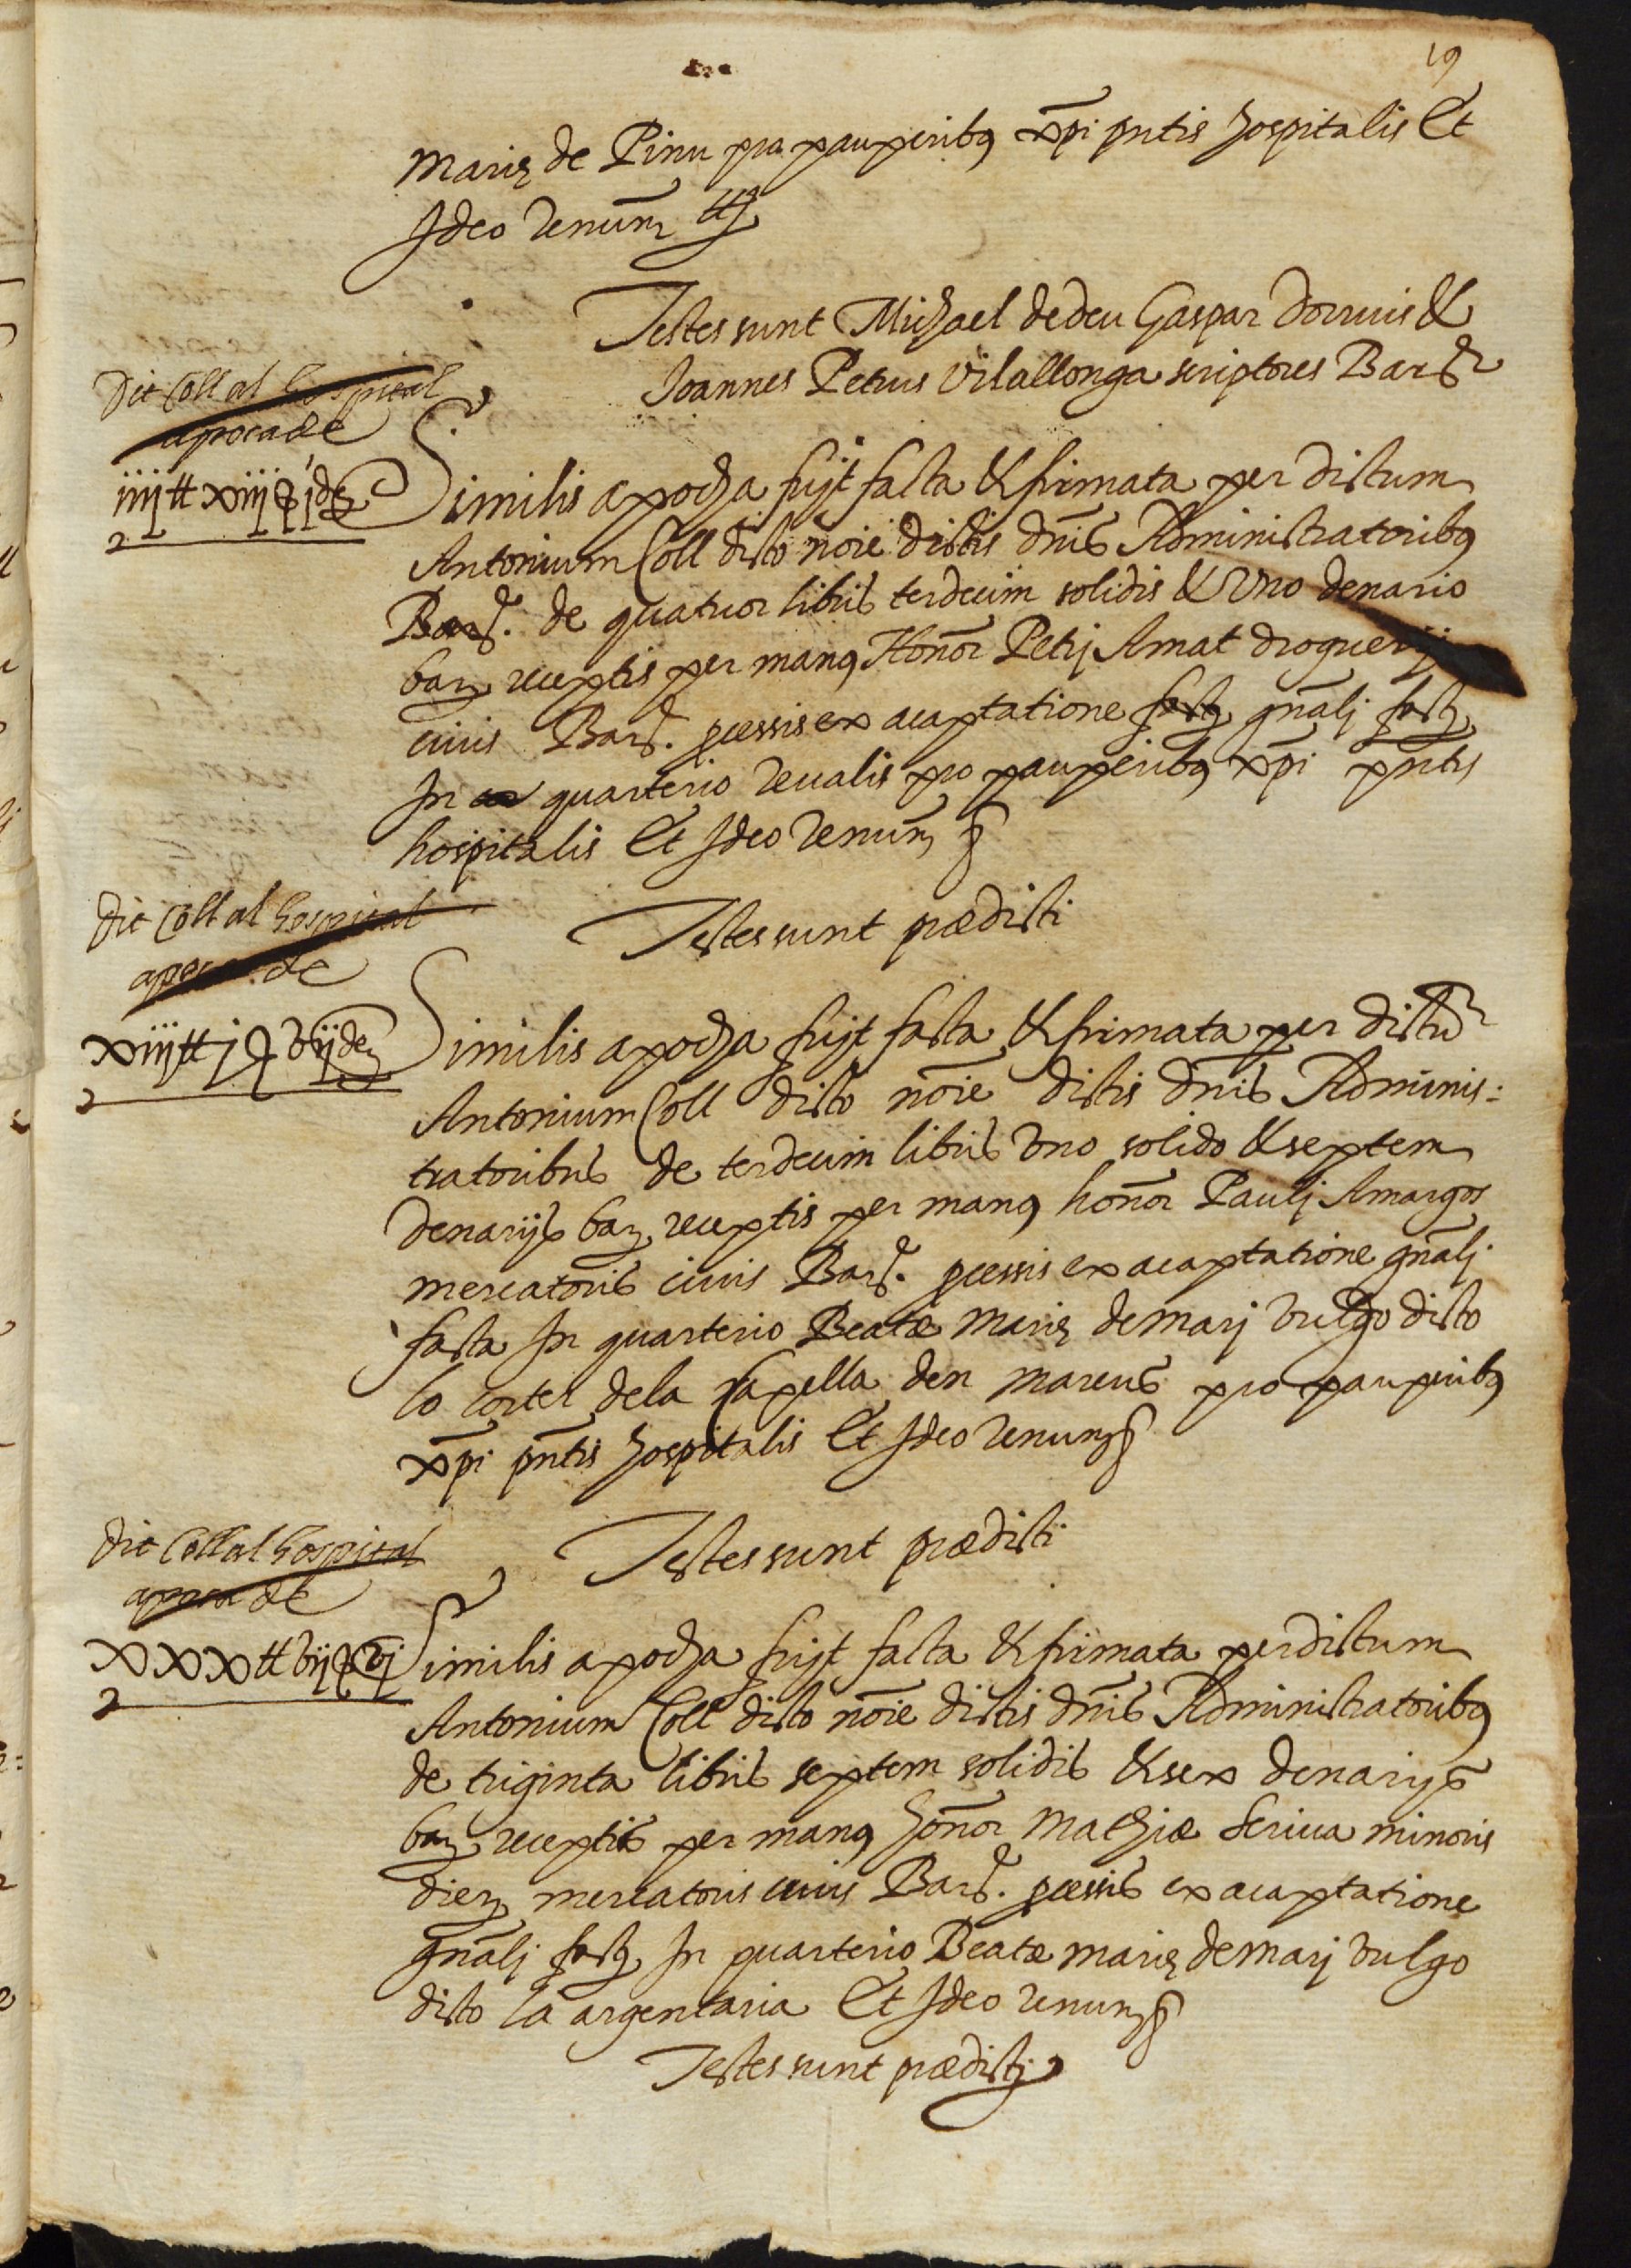 19
Marię de Pinu pro pauperibꝯ xp̄i pn̄tis Hospitalis Et
Ideo Renun̄ ttꝯ
Testes sunt Michael de deu Gaspar Dorrius &
Joannes Petrus Vilallonga scriptores Barᶜ
Dit Coll al hospital
apoca de
iiij tt xiij ẜ j dꝫ
Similis apocha fuit facta & firmata per dictum
Antonium Coll dicto noīe dictis dn̄is Administratoribꝯ
Barc̄. de quatuor libris terdecim solidis & vno denario
barꝫ receptis per manꝯ Honor̄ Petrj Amat droguerij
ciuis Barc̄. pcessis ex acaptatione factꝫ gn̄alj factꝫ
In quarterio Reualis pro pauperibꝯ xp̄i pn̄tis
hospitalis Et Ideo Renun̄ ẜ
Testes sunt prædicti
Dit Coll al hospital
apoca de
xiij tt j ẜ vij deꝫ
Similis apocha fuit facta & firmata per dictū
Antonium Coll dicto noīe dictis dn̄is Adminis:
tratoribus de terdecim libris vno solido & septem
denarijs barꝫ receptis per manꝯ honor̄ Paulj Amargos
mercatoris ciuis Barc̄. pcessis ex acaptatione gn̄alj
facta In quarterio Beatæ Marię de Marj vulgo dicto
lo corter dela capella den Marcus pro pauperibꝯ
xp̄i pn̄tis Hospitalis Et Ideo Renunꝫ ẜ
Testes sunt prædicti
Dit Coll al hospital
apoca de
xxx tt vij ẜ vj
Similis apocha fuit facta & firmata per dictum
Antonium Coll dicto noīe dictis dn̄is Administratoribꝯ
de triginta libris septem solidis & sex denarijs
barꝫ receptis per manꝯ Honor̄ Mathiæ Scriua minoris
dierꝫ mercatoris ciuis Barc̄. pcessis ex acaptatione
gn̄alj factꝫ In quarterio Beatæ Marię de Marj vulgo
dicto la argentaria Et Ideo Renunꝫ ẜ
Testes sunt prædictj